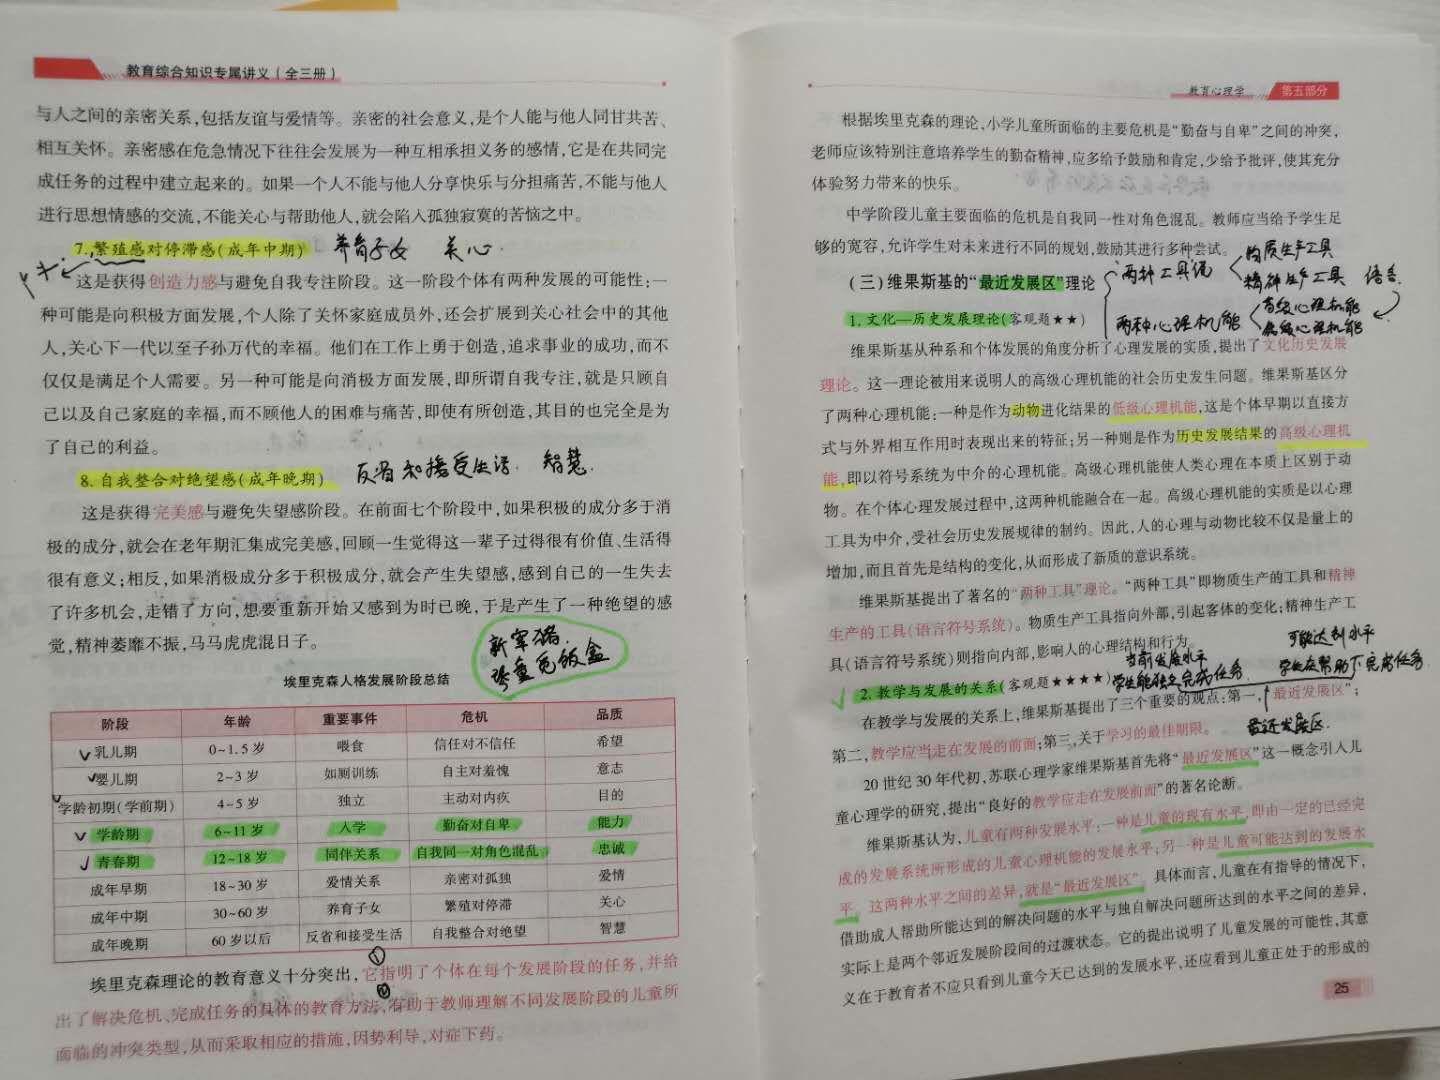 教育综合知识专属讲义(全三册)
与人之间的亲密关系,包括友谊与爱情等。亲密的社会意义,是个人能与他人同甘共苦、
相互关怀。亲密感在危急情况下往往会发展为一种互相承担义务的感情,它是在共同完
成任务的过程中建立起来的。如果一个人不能与他人分享快乐与分担痛苦,不能与他人
进行思想情感的交流,不能关心与帮助他人,就会陷入孤独寂寞的苦恼之中。
7. 繁殖感对停滞感(成年中期) 养育子女 关心
这是获得创造力感与避免自我专注阶段。这一阶段个体有两种发展的可能性:一
种可能是向积极方面发展,个人除了关怀家庭成员外,还会扩展到关心社会中的其他
人,关心下一代以至子孙万代的幸福。他们在工作上勇于创造,追求事业的成功,而不
仅仅是满足个人需要。另一种可能是向消极方面发展,即所谓自我专注,就是只顾自
己以及自己家庭的幸福,而不顾他人的困难与痛苦,即使有所创造,其目的也完全是为
了自己的利益。
8. 自我整合对绝望感(成年晚期) 反省和接受生活 智慧.
这是获得完美感与避免失望感阶段。在前面七个阶段中,如果积极的成分多于消
极的成分,就会在老年期汇集成完美感,回顾一生觉得这一辈子过得很有价值、生活得
很有意义;相反,如果消极成分多于积极成分,就会产生失望感,感到自己的一生失去
了许多机会,走错了方向,想要重新开始又感到为时已晚,于是产生了一种绝望的感
觉,精神萎靡不振,马马虎虎混日子。
埃里克森人格发展阶段总结
阶段 年龄 重要事件 危机 品质
乳儿期 0~1.5岁 喂食 信任对不信任 希望
婴儿期 2~3岁 如厕训练 自主对羞愧 意志
学龄初期(学前期) 4~5岁 独立 主动对内疚 目的
学龄期 6~11岁 入学 勤奋对自卑 能力
青春期 12~18岁 同伴关系 自我同一对角色混乱 忠诚
成年早期 18~30岁 爱情关系 亲密对孤独 爱情
成年中期 30~60岁 养育子女 繁殖对停滞 关心
成年晚期 60岁以后 反省和接受生活 自我整合对绝望 智慧
① ②
埃里克森理论的教育意义十分突出,它指明了个体在每个发展阶段的任务,并给
出了解决危机、完成任务的具体的教育方法,有助于教师理解不同发展阶段的儿童所
面临的冲突类型,从而采取相应的措施,因势利导,对症下药。
教育心理学 第五部分
根据埃里克森的理论,小学儿童所面临的主要危机是“勤奋与自卑”之间的冲突,
老师应该特别注意培养学生的勤奋精神,应多给予鼓励和肯定,少给予批评,使其充分
体验努力带来的快乐。
中学阶段儿童主要面临的危机是自我同一性对角色混乱。教师应当给予学生足
够的宽容,允许学生对未来进行不同的规划,鼓励其进行多种尝试。
(三)维果斯基的“最近发展区”理论
两种工具说
物质生产工具
精神生产工具 语言
1. 文化—历史发展理论(客观题★★)
两种心理机能
高级心理机能
低级心理机能
维果斯基从种系和个体发展的角度分析了心理发展的实质,提出了文化历史发展
理论。这一理论被用来说明人的高级心理机能的社会历史发生问题。维果斯基区分
了两种心理机能:一种是作为动物进化结果的低级心理机能,这是个体早期以直接方
式与外界相互作用时表现出来的特征;另一种则是作为历史发展结果的高级心理机
能,即以符号系统为中介的心理机能。高级心理机能使人类心理在本质上区别于动
物。在个体心理发展过程中,这两种机能融合在一起。高级心理机能的实质是以心理
工具为中介,受社会历史发展规律的制约。因此,人的心理与动物比较不仅是量上的
增加,而且首先是结构的变化,从而形成了新质的意识系统。
维果斯基提出了著名的“两种工具”理论。“两种工具”即物质生产的工具和精神
生产的工具(语言符号系统)。物质生产工具指向外部,引起客体的变化;精神生产工
具(语言符号系统)则指向内部,影响人的心理结构和行为。
当前发展水平
学生能独立完成任务.
可能达到水平
学生在帮助下完成任务
2. 教学与发展的关系(客观题★★★★)
在教学与发展的关系上,维果斯基提出了三个重要的观点:第一,“最近发展区”;
最近发展区.
第二,教学应当走在发展的前面;第三,关于学习的最佳期限。
20世纪30年代初,苏联心理学家维果斯基首先将“最近发展区”这一概念引入儿
童心理学的研究,提出“良好的教学应走在发展前面”的著名论断。
维果斯基认为,儿童有两种发展水平:一种是儿童的现有水平,即由一定的已经完
成的发展系统所形成的儿童心理机能的发展水平;另一种是儿童可能达到的发展水
平。这两种水平之间的差异,就是“最近发展区”。具体而言,儿童在有指导的情况下,
借助成人帮助所能达到的解决问题的水平与独自解决问题所达到的水平之间的差异,
实际上是两个邻近发展阶段间的过渡状态。它的提出说明了儿童发展的可能性,其意
义在于教育者不应只看到儿童今天已达到的发展水平,还应看到儿童正处于的形成的
25